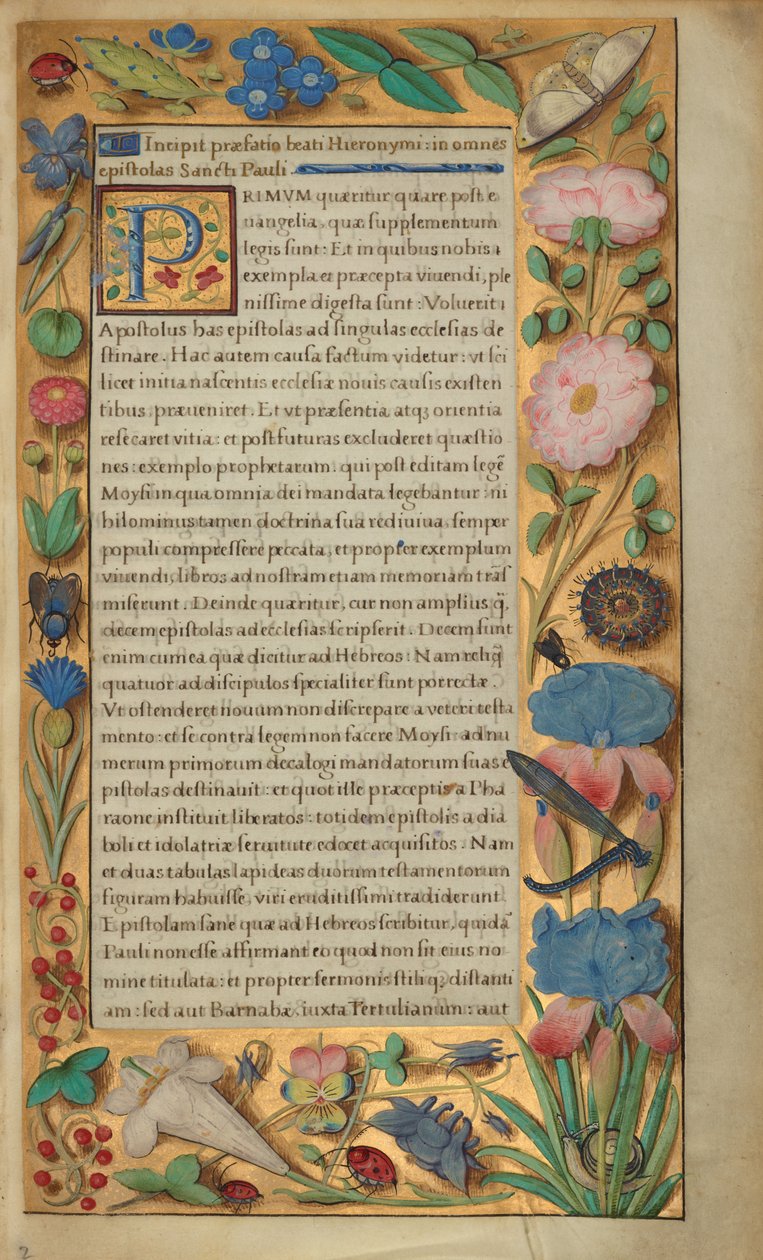 Incipit præfatio beati Hieronymi : in omnes
epistolas Sancti Pauli .
PRIMVM quæritur quare post e
uangelia, quæ supplementum
legis sunt : Et in quibus nobis
exempla et præcepta viuendi, ple
nissime digesta sunt : Voluerit
Apostolus has epistolas ad singulas ecclesias de
stinare . Hac autem causa factum videtur : vt sci
licet initia nascentis ecclesiæ nouis causis existen
tibus, præueniret . Et vt præsentia atqꝫ orientia
resecaret vitia : et post futuras excluderet quæstio
nes : exemplo prophetarum . qui post editam legẽ
Moysi in qua omnia dei mandata legebantur : ni
hilominus tamen doctrina sua rediuiua, semper
populi compressere peccata, et propter exemplum
viuendi, libros ad nostram etiam memoriam trãs
miserunt . Deinde quæritur, cur non amplius q̃,
decem epistolas ad ecclesias scripserit . Decem sunt
enim cum ea quæ dicitur ad Hebreos : Nam reliq̃
quatuor ad discipulos specialiter sunt porrectæ .
Vt ostenderet nouum non discrepare a veteri testa
mento : et se contra legem non facere Moysi : ad nu
merum primorum decalogi mandatorum suas e
pistolas destinauit : et quot ille præceptis a Pha
raone instituit liberatos : totidem epistolis a dia
boli et idolatriæ seruitute edocet acquisitos . Nam
et duas tabulas lapideas duorum testamentorum
figuram habuisse, viri eruditissimi tradiderunt
Epistolam sane quæ ad Hebreos scribitur, quidã
Pauli non esse affirmant eo quod non sit eius no
mine titulata : et propter sermonis stiliqꝫ distanti
am : sed aut Barnabæ, iuxta Tertulianum : aut
2